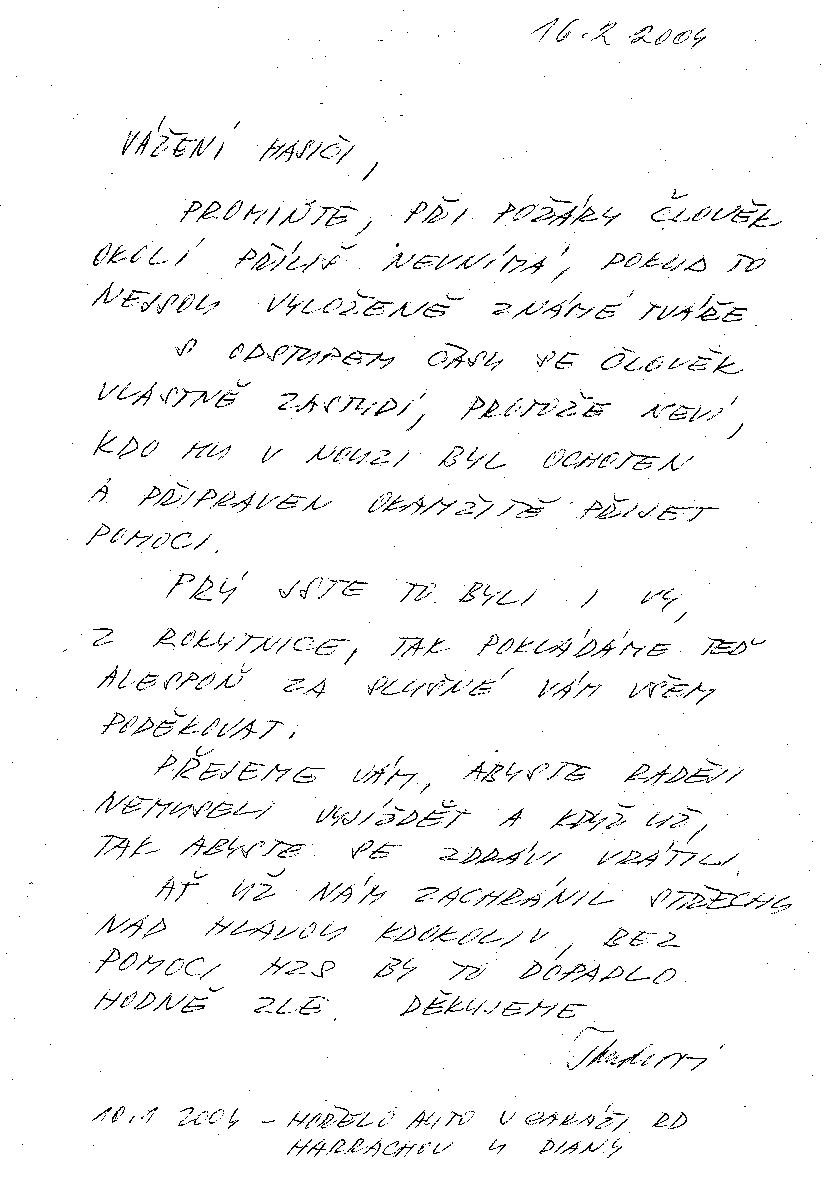 16.2.2004
VÁŽENÍ HASIČI,
PROMIŇTE, PŘI POŽÁRU ČLOVĚK
OKOLÍ PŘÍLIŠ NEVNÍMÁ, POKUD TO
NEJSOU VYLOŽENĚ ZNÁMÉ TVÁŘE.
S ODSTUPEM ČASU SE ČLOVĚK
VLASTNĚ ZASTYDÍ, PROTOŽE NEVÍ,
KDO MU V NOUZI BYL OCHOTEN
A PŘIPRAVEN OKAMŽITĚ PŘIJET
POMOCI.
PRÝ JSTE TO BYLI I VY,
Z ROKYTNICE, TAK POKLÁDÁME TEĎ
ALESPOŇ ZA SLUŠNÉ VÁM VŠEM
PODĚKOVAT.
PŘEJEME VÁM, ABYSTE RADĚJI
NEMUSELI VYJÍŽDĚT A KDYŽ UŽ,
TAK ABYSTE SE ZDRÁVI VRÁTILI.
AŤ UŽ NÁM ZACHRÁNIL STŘECHU
NAD HLAVOU KDOKOLIV, BEZ
POMOCI HZS BY TO DOPADLO
HODNĚ ZLE. DĚKUJEME
10.1 2004 - HOŘELO AUTO V GARÁŽI RD
HARRACHOV U DIANY